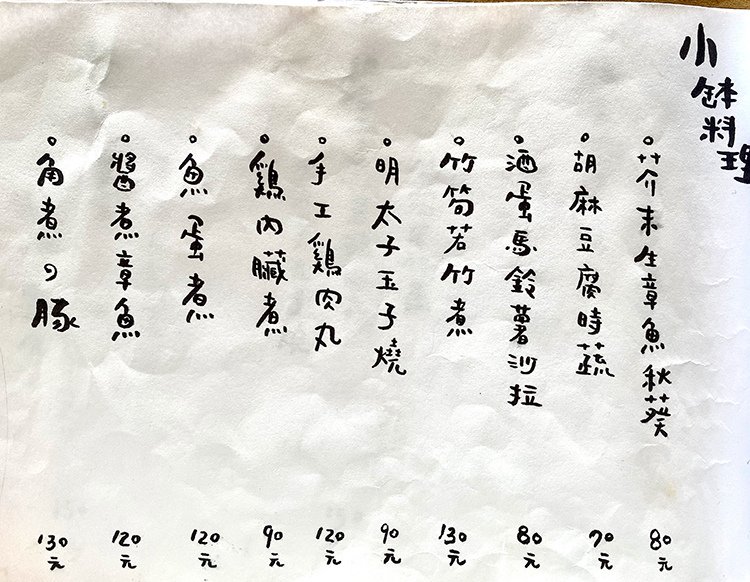 小鉢料理
芥末生章魚秋葵 80元
胡麻豆腐時蔬 70元
酒蛋馬鈴薯沙拉 80元
竹筍若竹煮 130元
明太子玉子燒 90元
手工雞肉丸 120元
雞內臟煮 90元
魚蛋煮 120元
醬煮章魚 120元
角煮の豚 130元